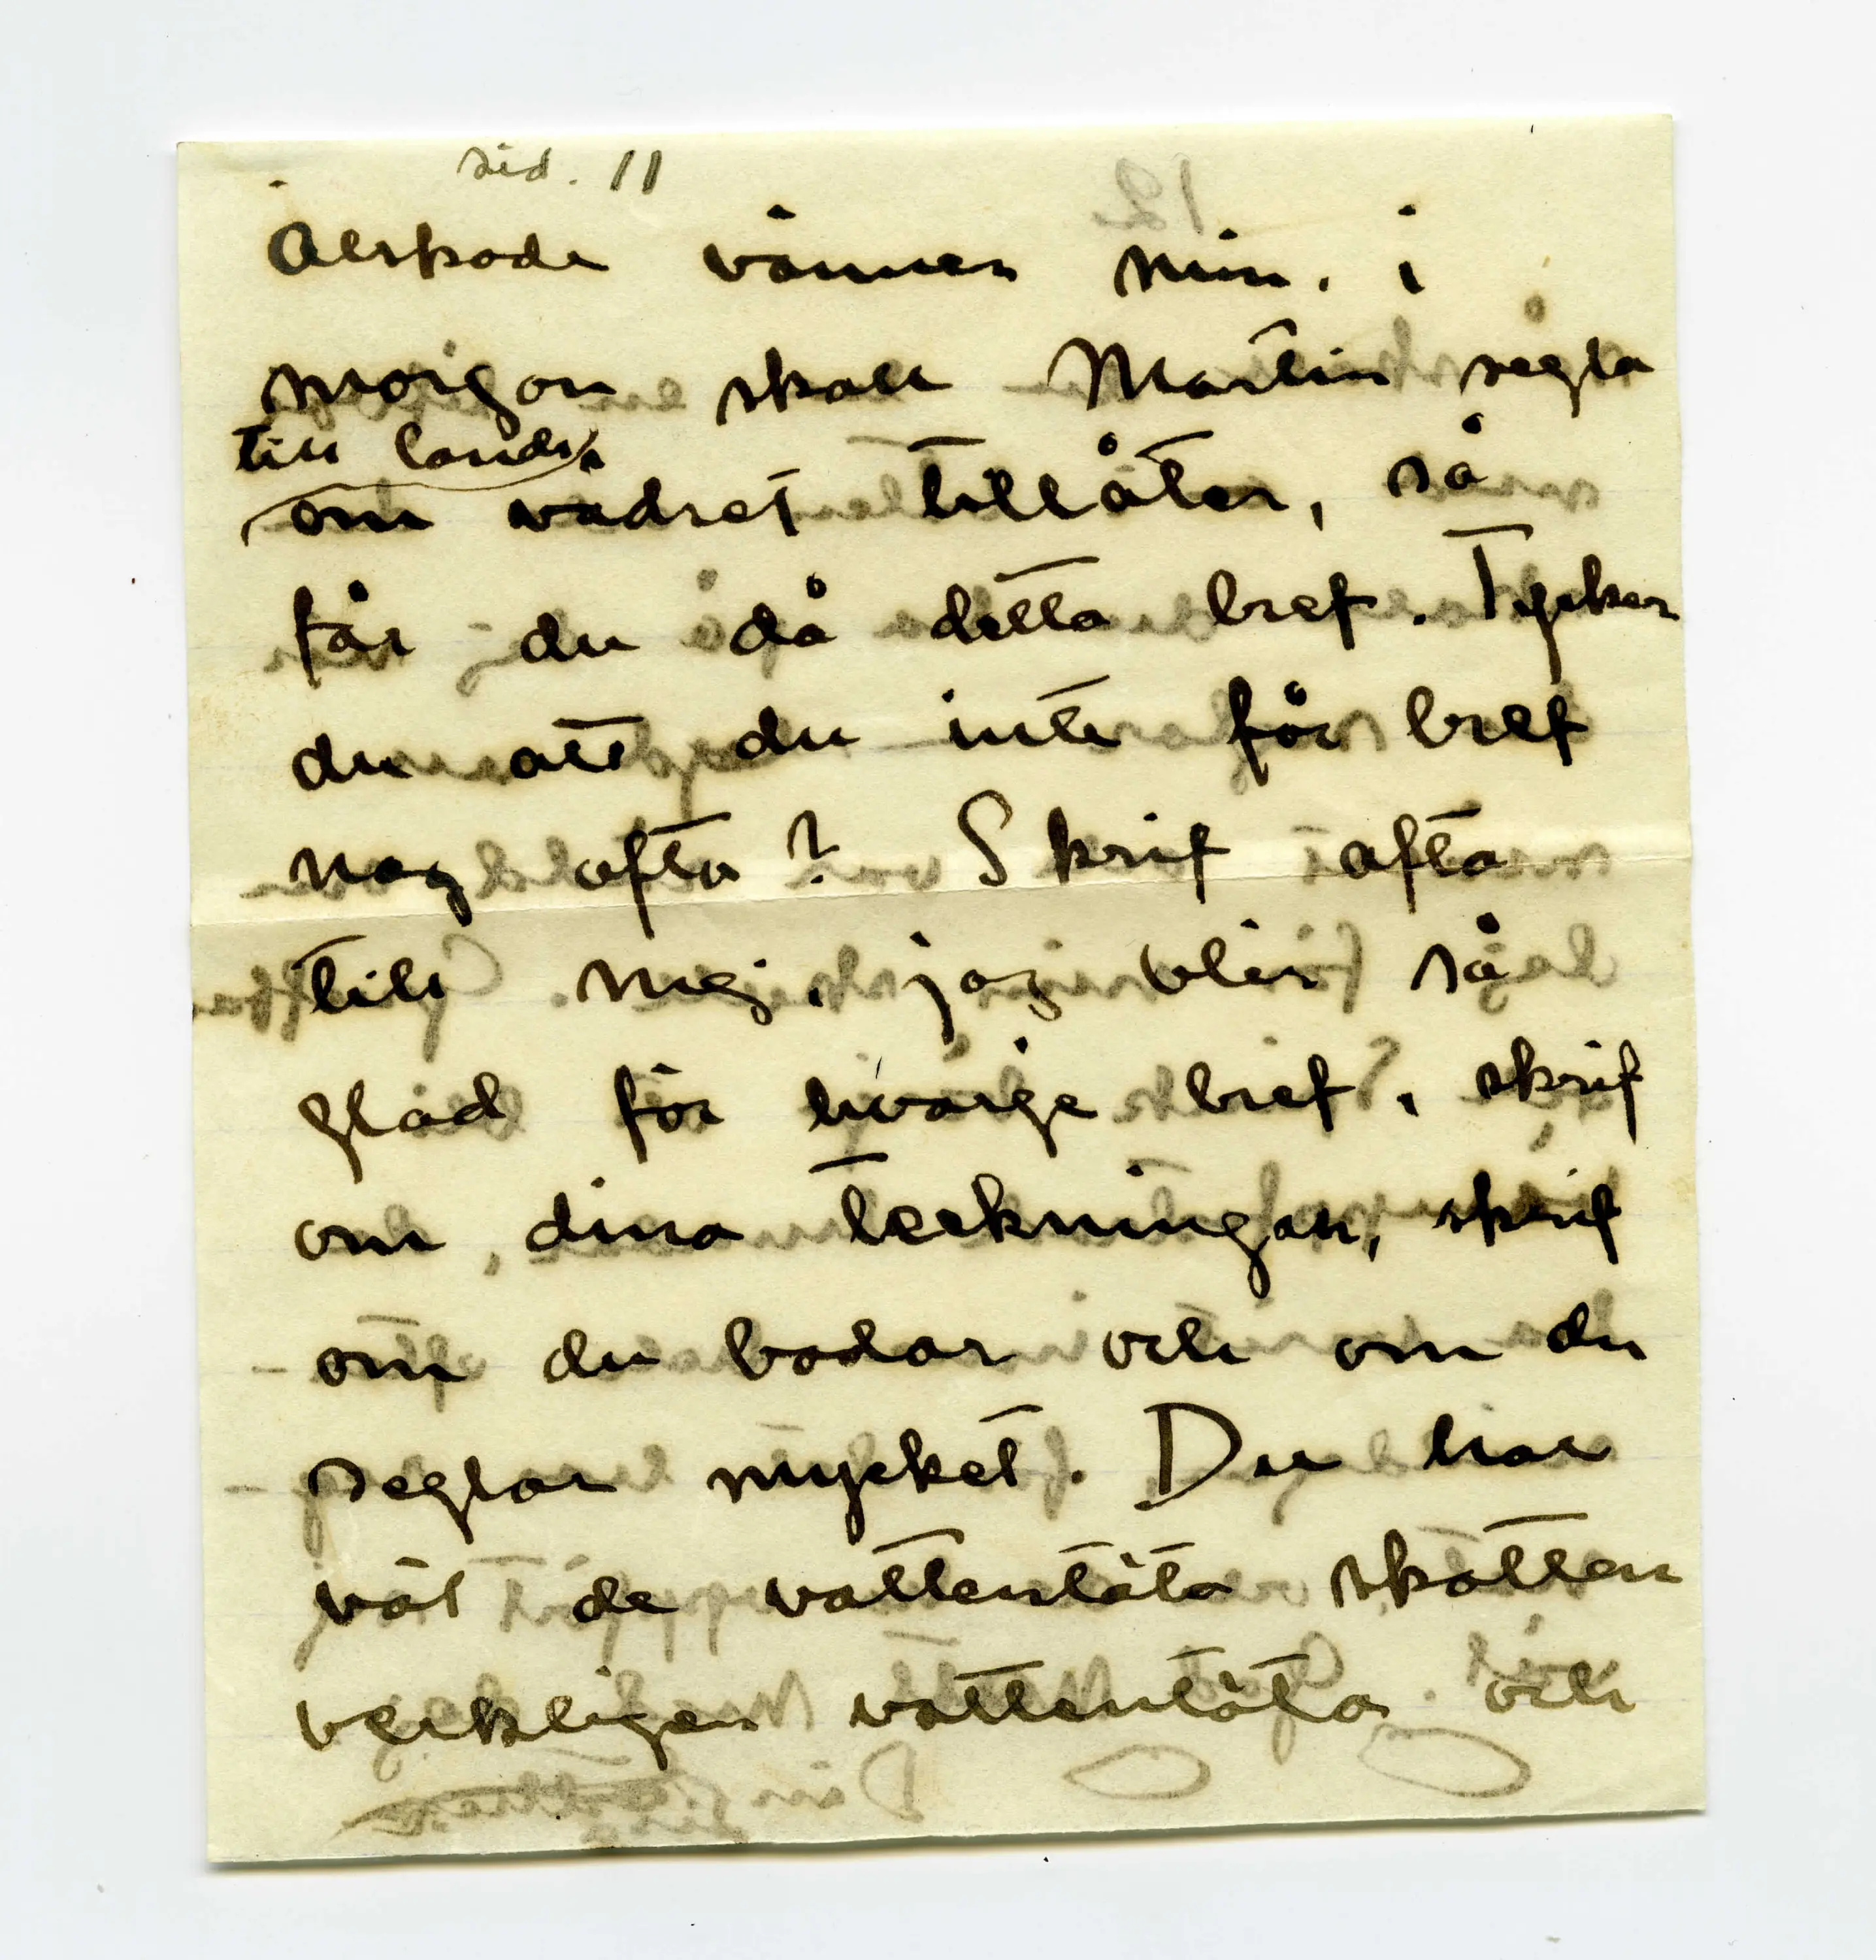 sid. 11
Älskade vännen min. i
morgon skall Martin segla
till lands
om vädret tillåter, så
får du då detta bref. Tycker
du att du inte får bref
nog ofta? Skrif ofta
till mig, jag blir så
glad för hvarje bref, skrif
om dina teckningar, skrif
om du badar och om du
seglar mycket. Du har
väl de vattentäta skotten
verkligen vattentäta och